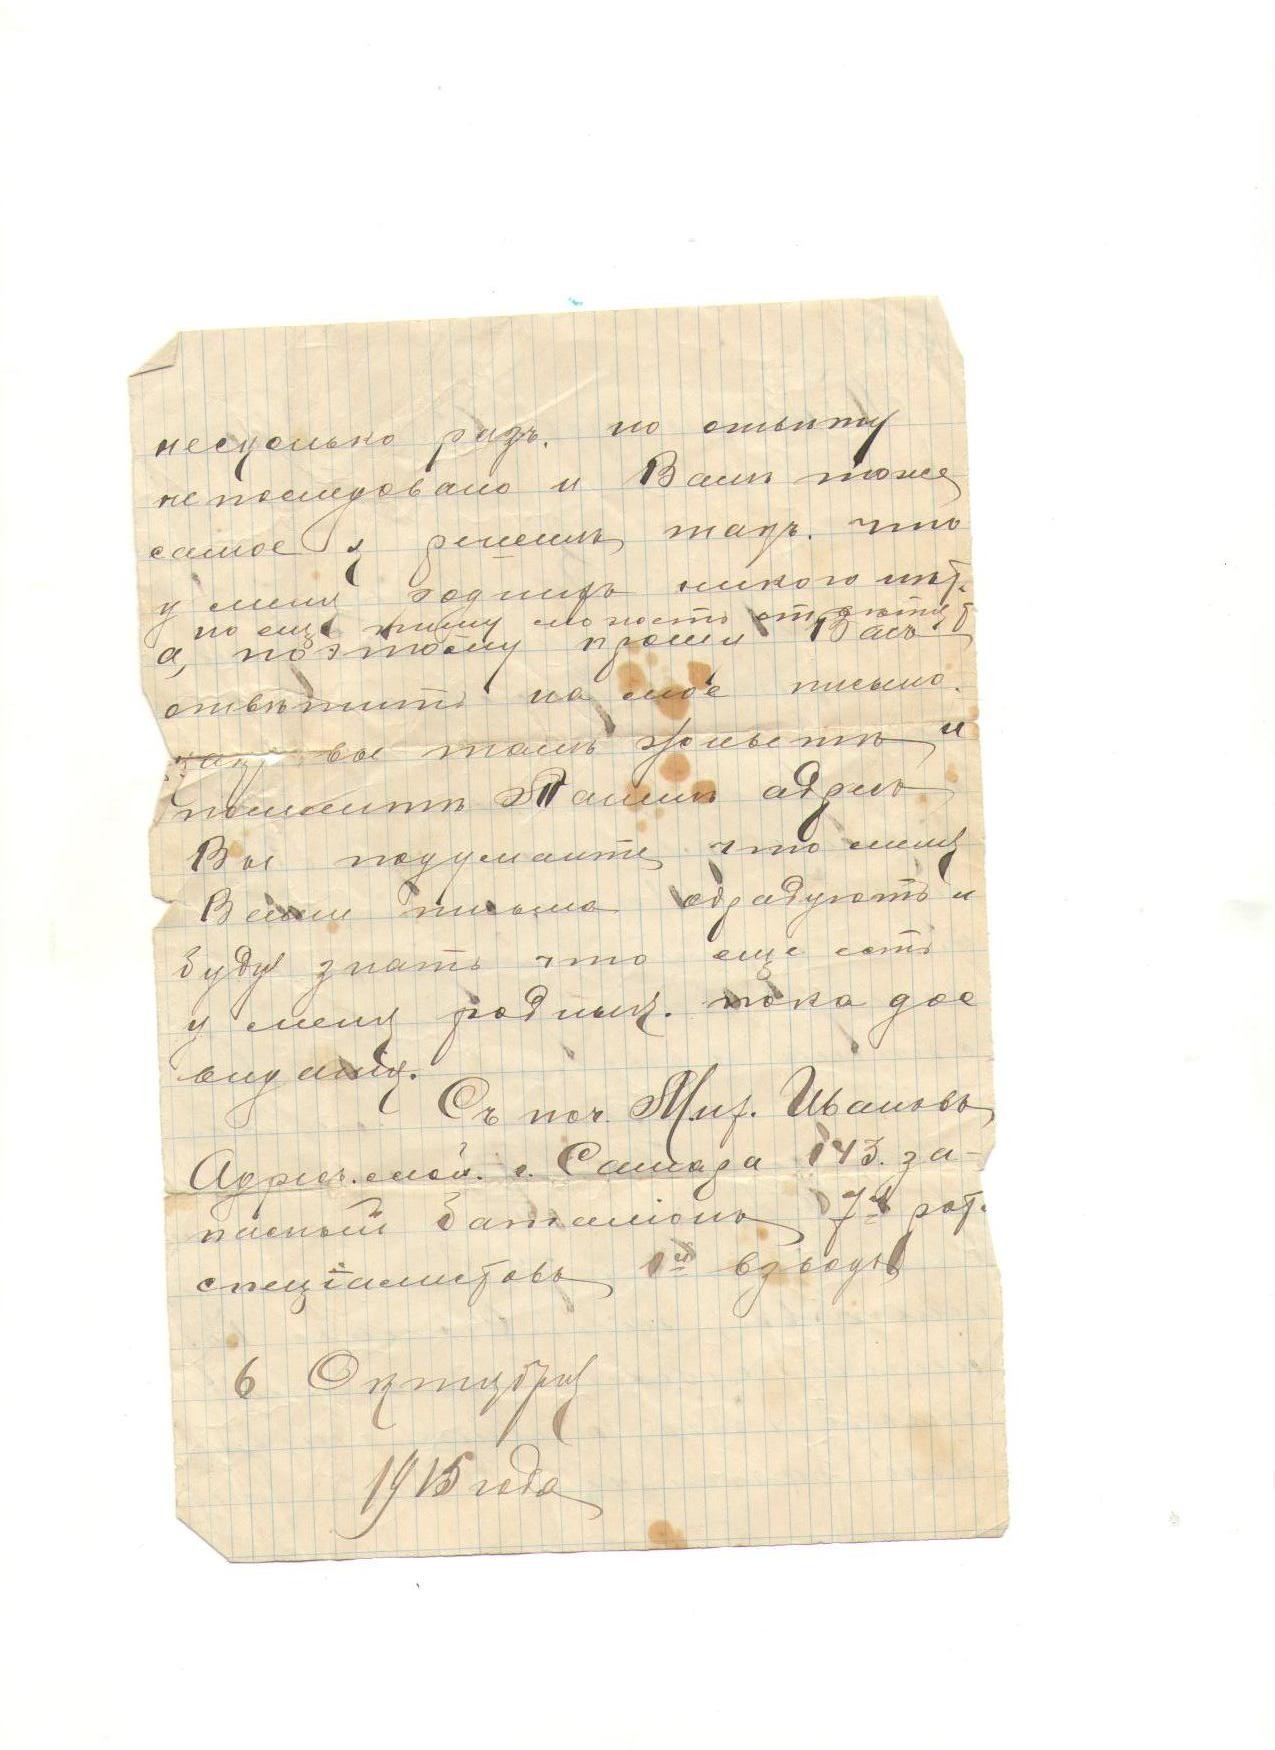 несколько разъ. но отвѣту
непоследовало и Вамъ тоже
самое я решилъ такъ. что
у меня родныхъ никого нѣт.
но еще пишу
а, поэтому прошу Васъ
отвѣтить на мое письмо.
какъ вы тамъ живете и
помните Паши адрисъ
Вы подумаите что меня
Ваши письма обрадуютъ и
буду знать что еще есть
у меня родныя. пока дос
виданія.
Съ поч. Мих. Ивановъ
Адрисъ. мой. г. Самара 143. за-
пасный баталіонъ 7я рот.
спеціалистовъ 1й взводъ
6 Октября
1915 года